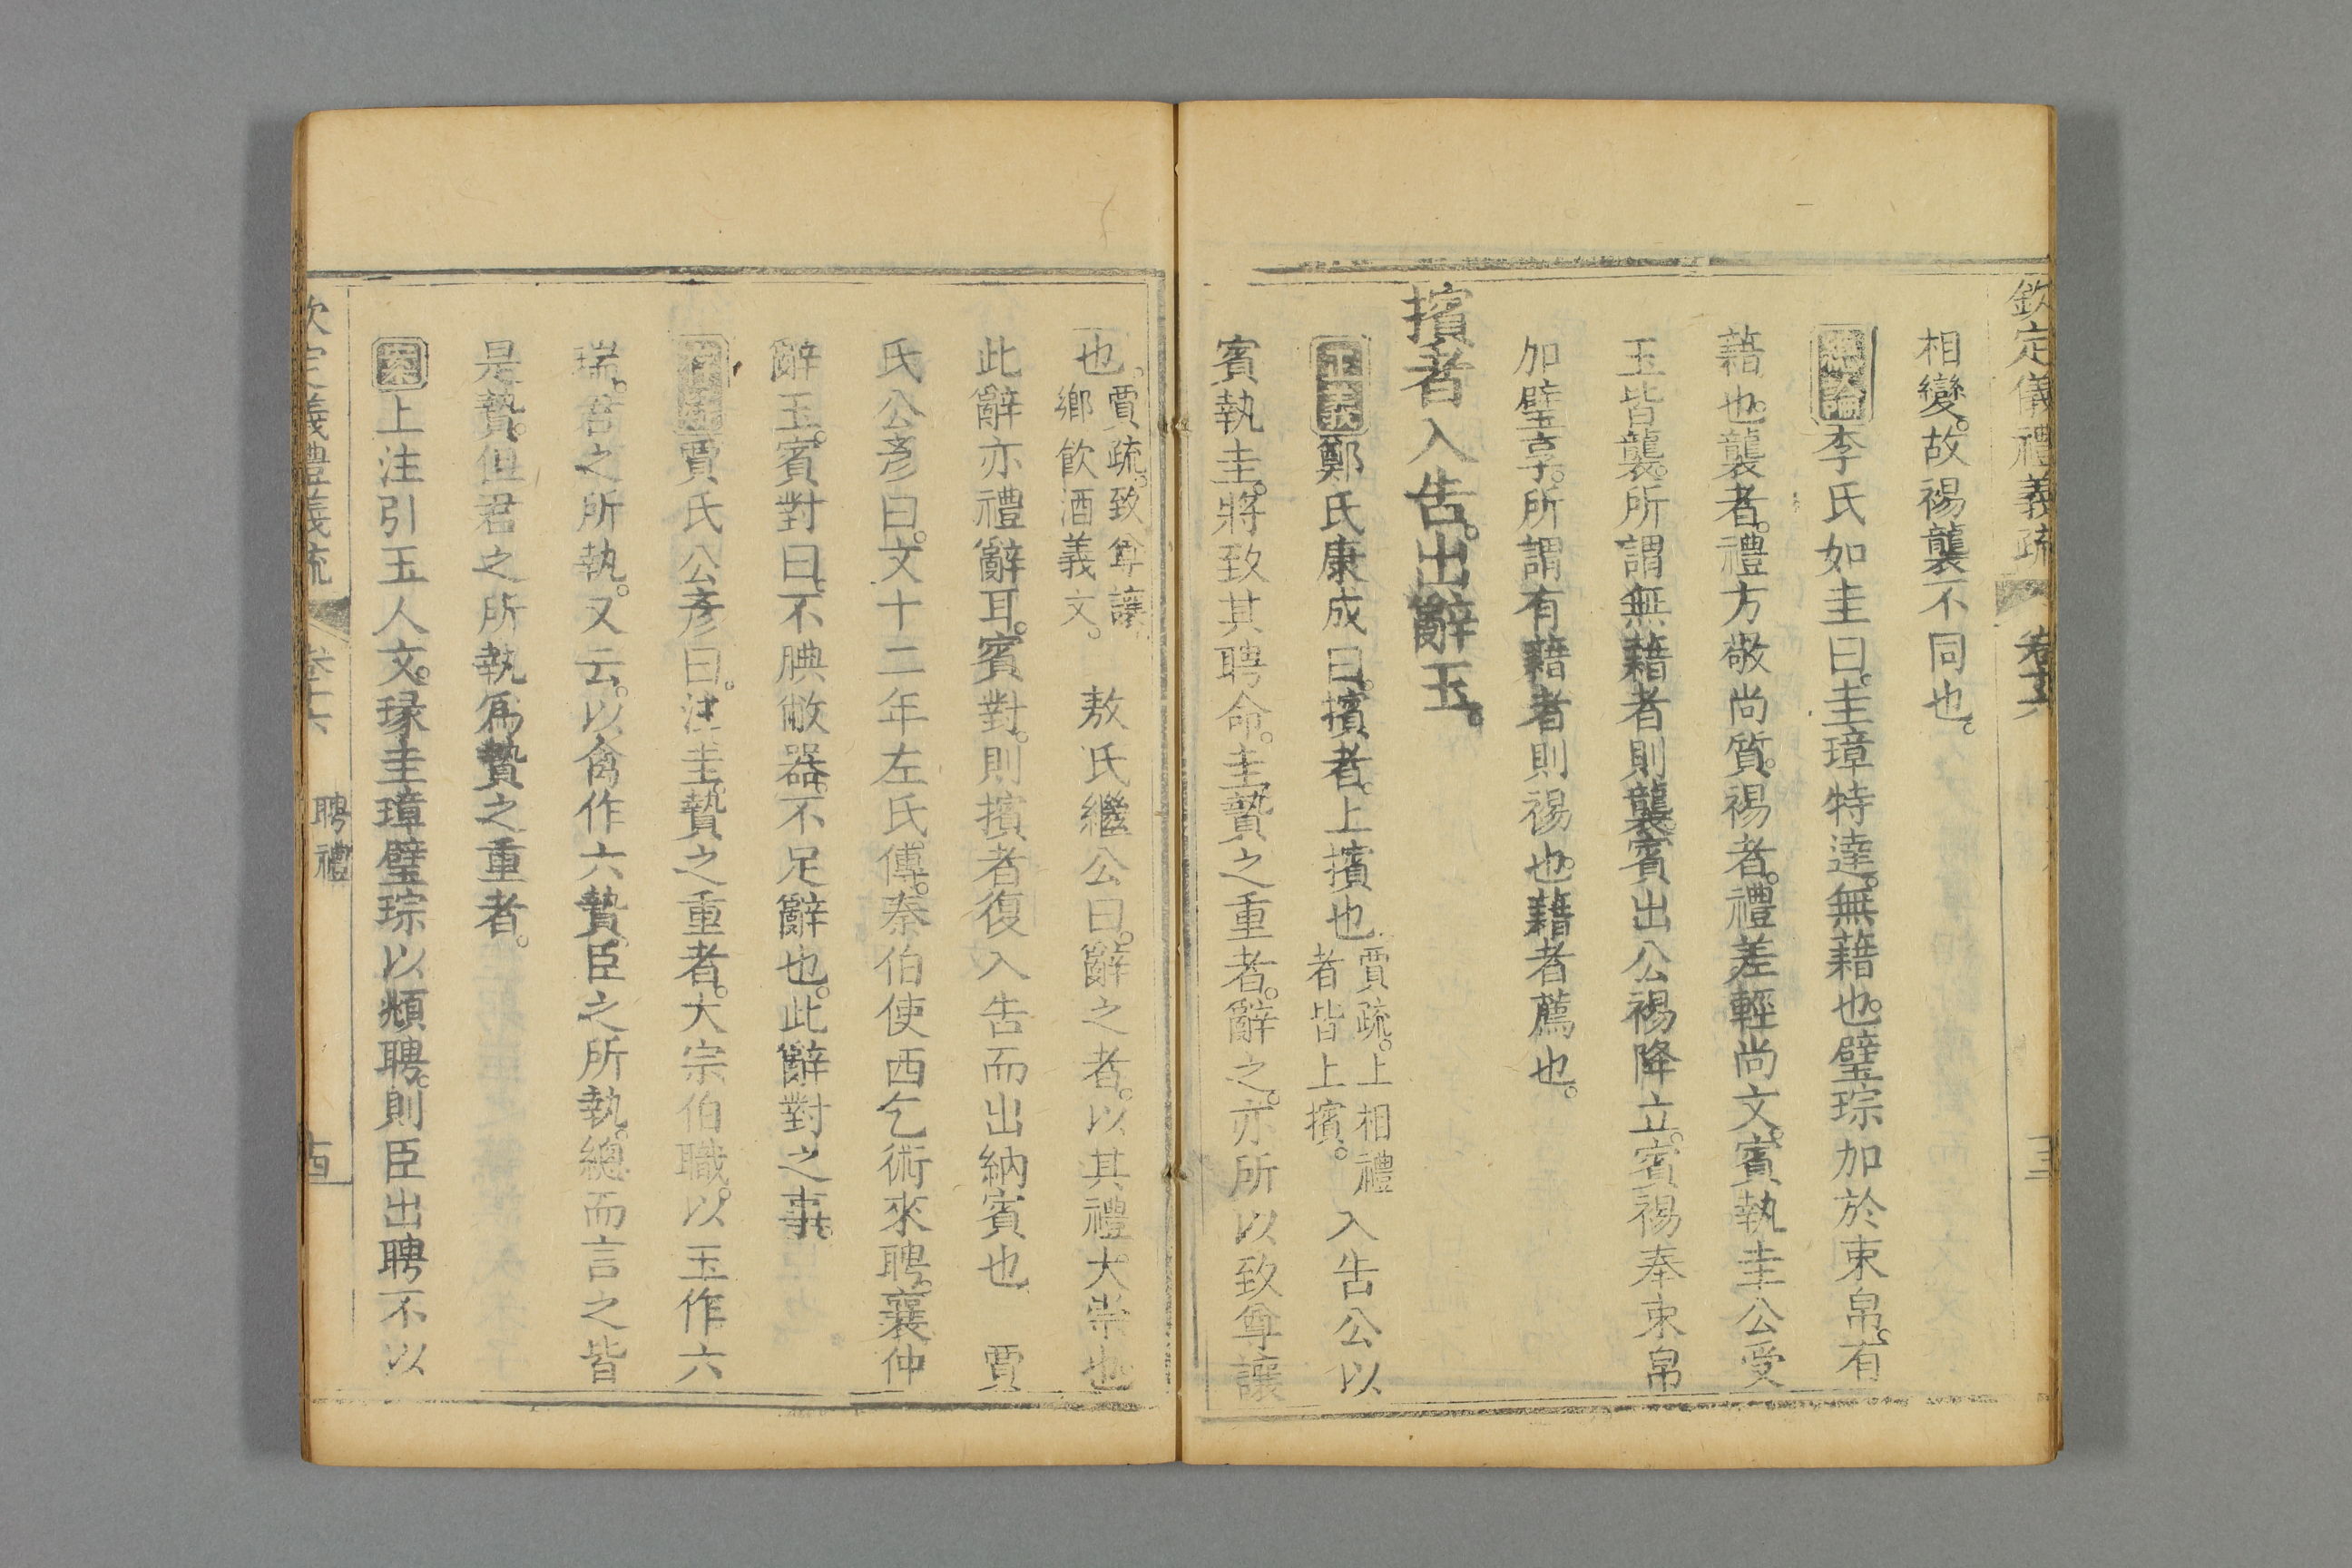 欽定儀禮義疏 卷十六
相變。故裼襲不同也。
總論李氏如圭曰。圭璋特達。無藉也。璧琮加於束帛。有
藉也。襲者。禮方敬尚質。裼者。禮差輕尚文。賓執圭公受
玉皆襲。所謂無藉者則襲。賓出公裼降立。賓裼奉束帛
加璧享。所謂有藉者則裼也。藉者薦也。
擯者入告。出辭玉。
正義鄭氏康成曰。擯者。上擯也。賈疏。上相禮者皆上擯。入告公以
賓執圭。將致其聘命。圭贄之重者。辭之。亦所以致尊讓
也。賈疏。致尊讓鄉飲酒義文。 敖氏繼公曰。辭之者。以其禮大崇也
此辭亦禮辭耳。賓對。則擯者復入告而出納賓也 賈
氏公彥曰。文十二年左氏傳。秦伯使西乞術來聘。襄仲
辭玉。賓對曰。不腆敝器。不足辭也。此辭對之事。
賈氏公彥曰。注圭。贄之重者。大宗伯職。以玉作六
瑞。君之所執。又云。以禽作六贄。臣之所執。總而言之皆
是贄。但君之所執爲贄之重者。
案上注引玉人文。瑑圭璋璧琮以頫聘。則臣出聘不以
欽定儀禮義疏 卷十六 聘禮